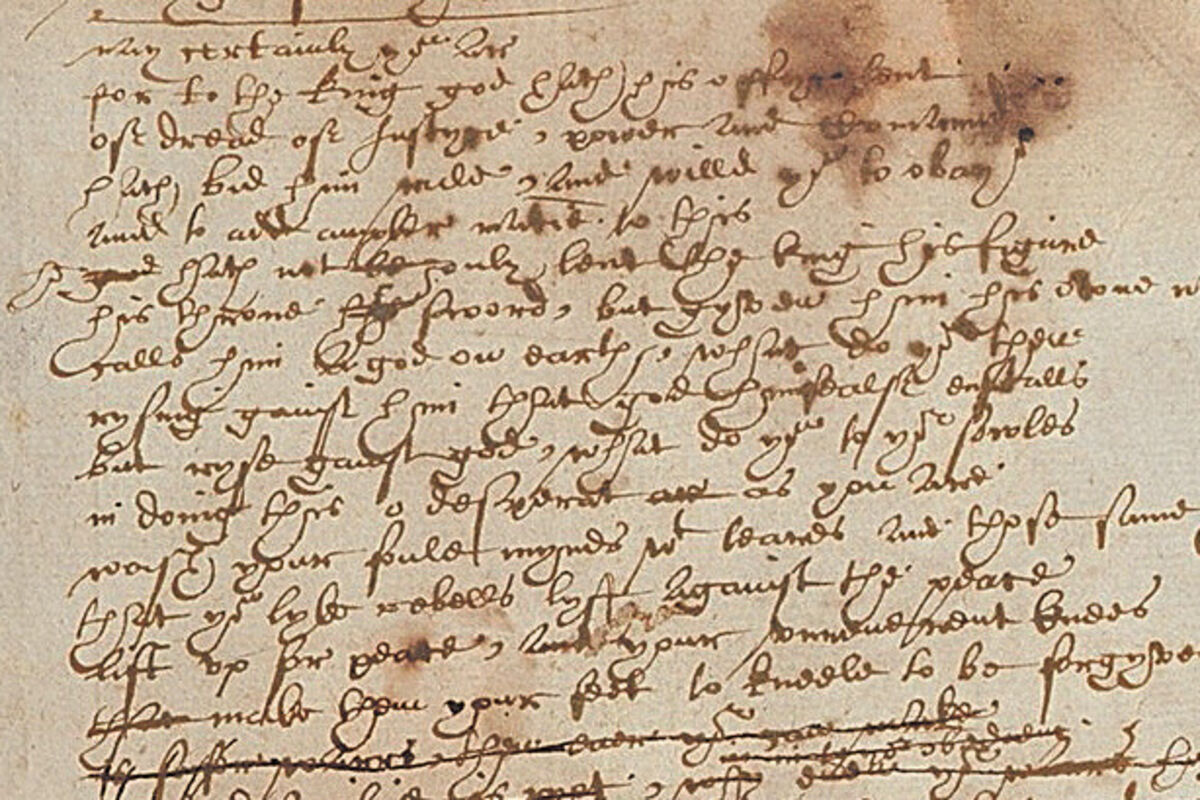 nay certainly yor ar
for to the king god hath his offyc lent
of dread of Iustyce, power and Comaund
hath bid him rule, and willd yo to obay
and to add ampler matie. to this
he god hath not le only lent the king his figure
his throne his sword, but gyven him his owne
calls him a god on earth, what do yo then
rysing gainst him that god himsealf enstalls
but ryse gainst god, what do yo to yor sowles
in doing this o desperat ar as you are.
wash your foule mynds wt teares and those same
that yo lyke rebells lyft against the peace
lift vp for peace, and your vnreuerent knees
that make them your feet to kneele to be forgyven
is safer warrs, then euer yo can make